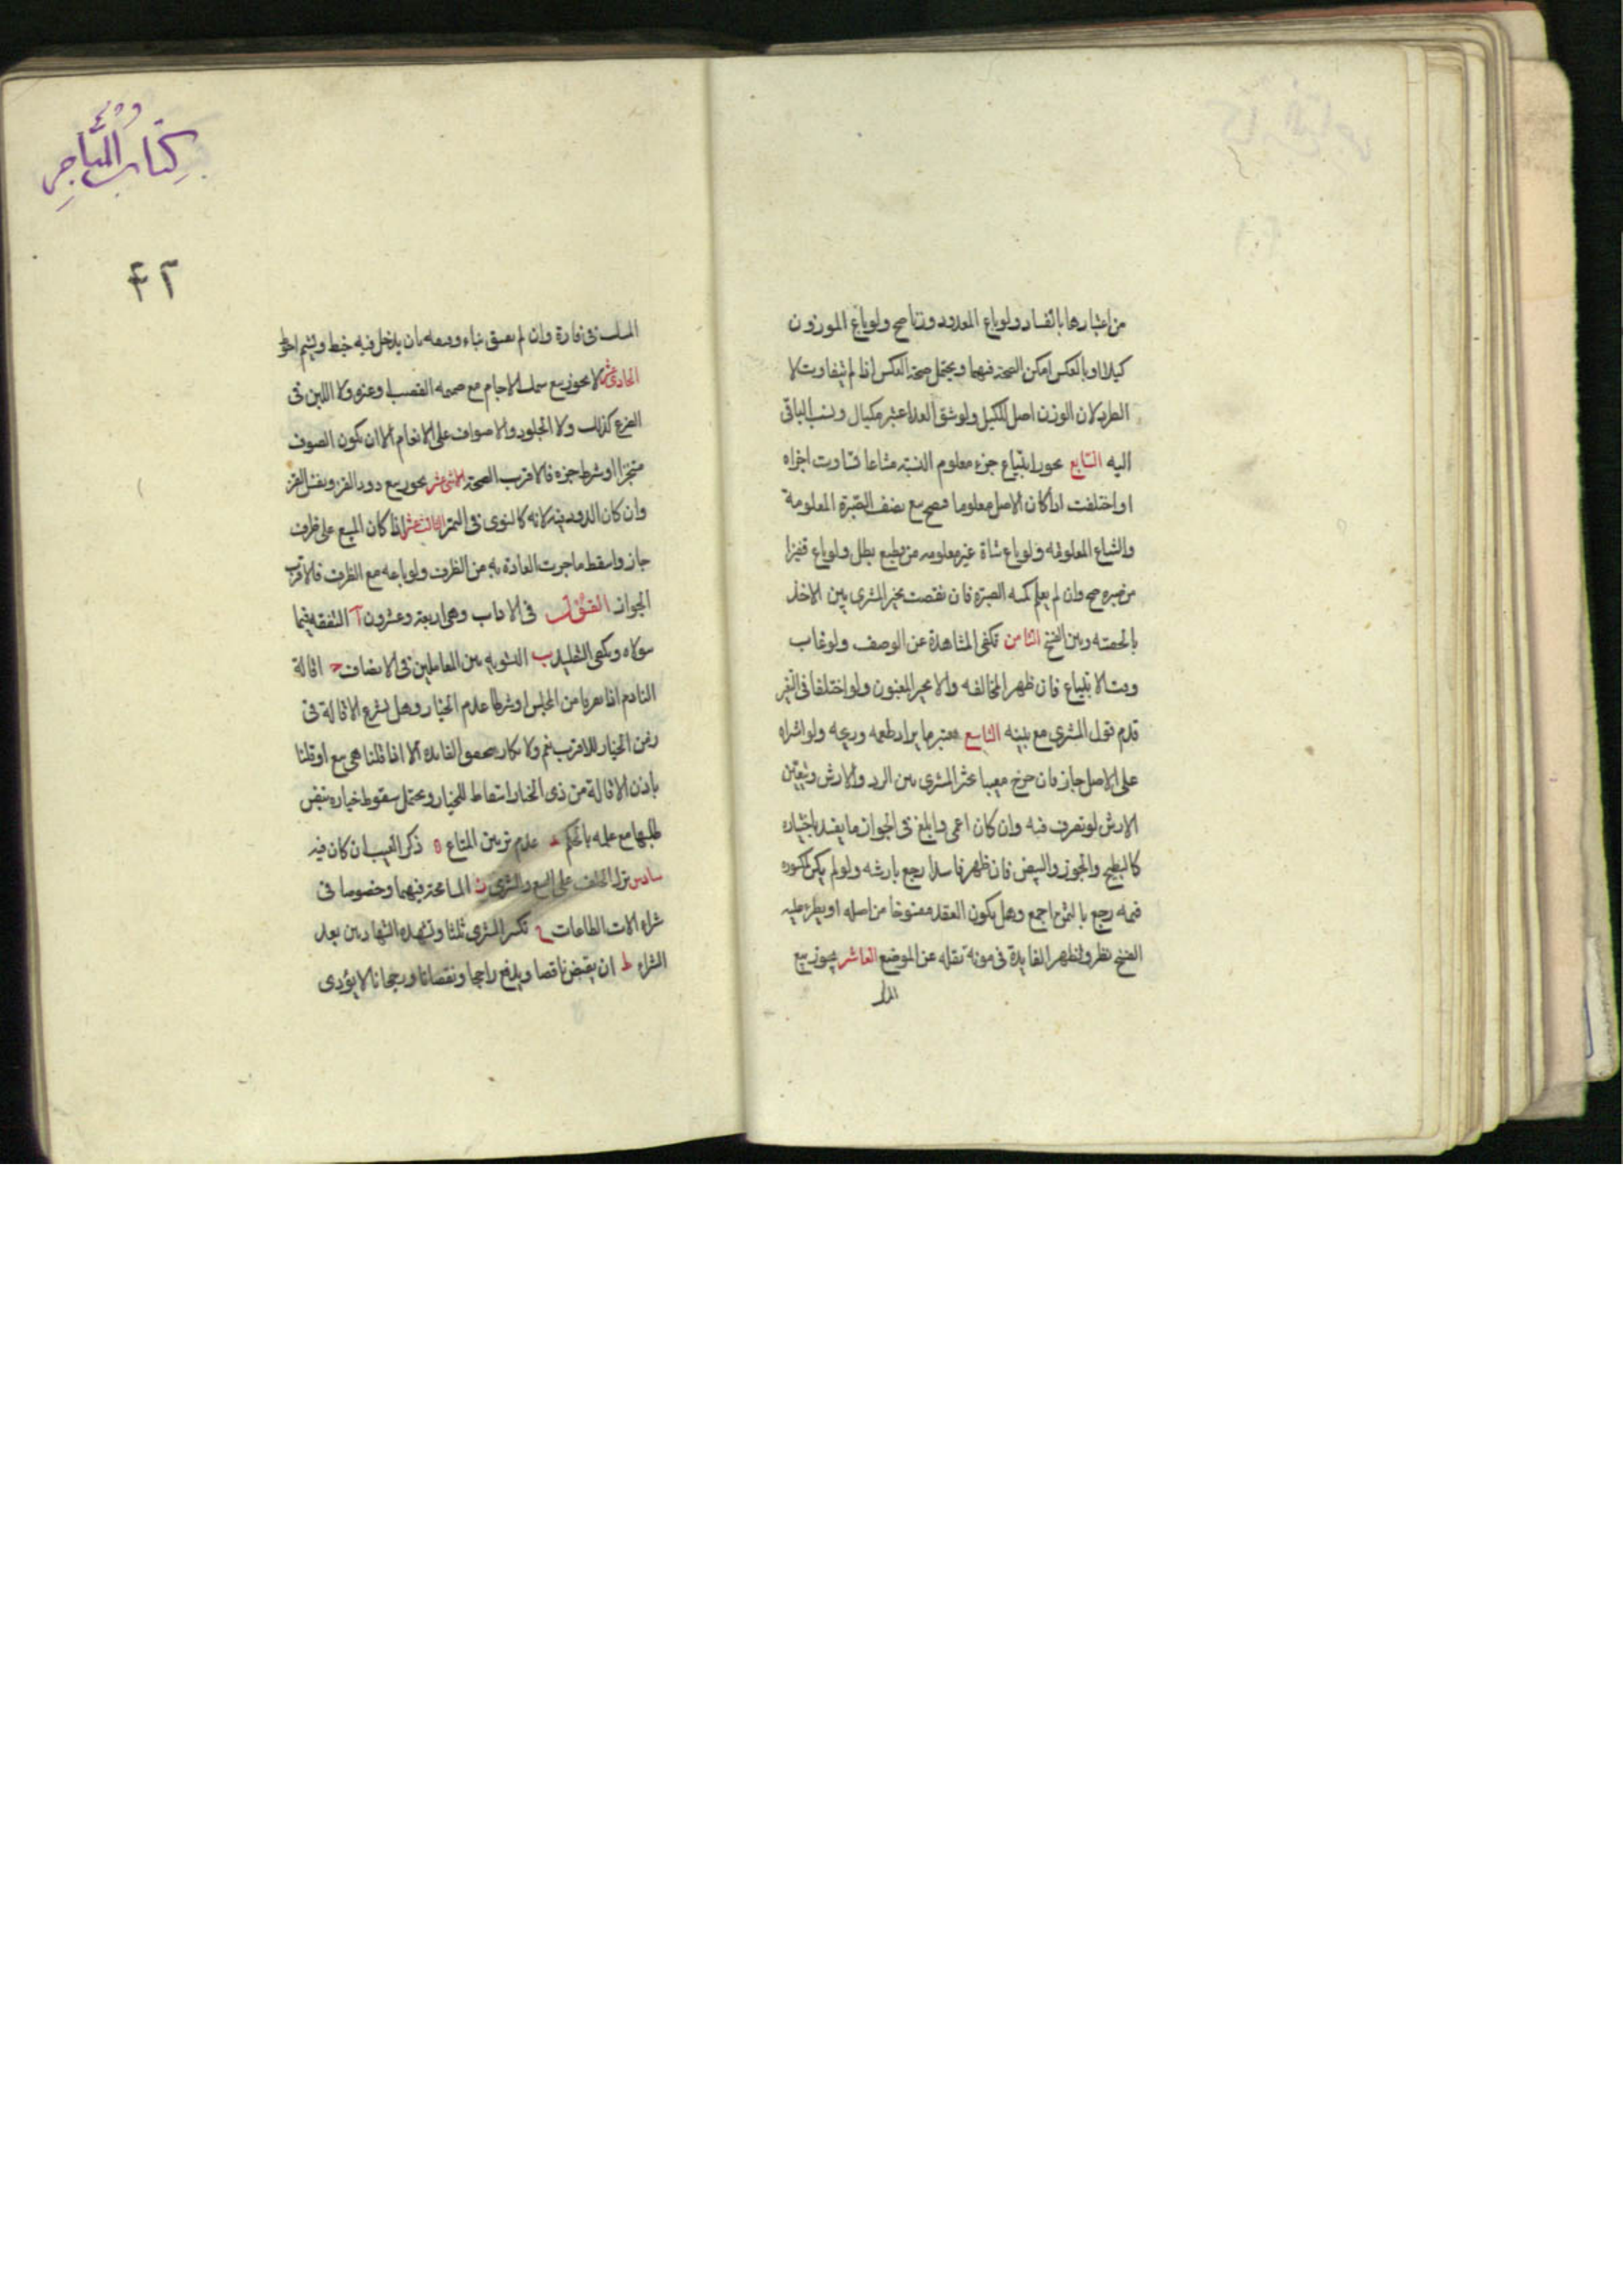 من اعتبارها بالفساد ولو باع المعدود وزنا صح ولو باع الموزون
كيلا او بالعكس امكن الصحة فيهما ويحتمل صحة العكس اذا لم يتفاوت لا
الطرد لان الوزن اصل للكيل ولو شق العد اعتبر مكيال ونسب الباقي
اليه السابع يجوز ابتياع جزء معلوم النسبة مشاعا تساوت اجزاه
او اختلفت اذا كان الاصل معلوما فيصح بيع نصف الصبرة المعلومة
والشاع المعلومه ولو باع شاة غير معلومه من قطيع بطل ولو باع قفيزا
من صبره صح وان لم يعلم كميه الصبرة فان نقصت تخير المشترى بين الاخذ
بالحصه وبين الفسخ الثامن تكفى المشاهدة عن الوصف ولو غاب
وقت الابتياع فان ظهر المخالفه والا تخير المغبون ولو اختلفا فى التغير
قدم قول المشترى مع يمينه التاسع يعتبر ما يراد طعمه وريحه ولو اشتراه
على الاصل جاز فان خرج معيبا تخير المشترى بين الرد والارش ويتعين
الارش لو تصرف فيه وان كان اعمى وابلغ فى الجواز ما يفسد باختباره
كالبطيخ والجوز والبيض فان ظهر فاسدا رجع بارشه ولو لم يكن لمكسوره
قيمه رجع بالثمن اجمع وهل يكون العقد مفسوخا من اصله او يطرء عليه
الفسخ نظر وتظهر الفايدة فى مونه نقله عن الموضع العاشر يجوز بيع
المسك
كِتاب المَتاجِرِ
۴۲
المسك فى فارة وان لم يفتق بناء وفتقه بان يدخل فيه خيط ويشم احوط
الحادى عشر لا يجوز بيع سمك الاجام مع ضميمه القصب او غيره ولا اللبن فى
الضرع كذلك ولا الجلود والاصواف على الانعام الا ان يكون الصوف
مستجزا او شرط جزه فالاقرب الصحة الثانى عشر يجوز بيع دود القز ونفس القز
وان كان الدود فيه لانه كالنوى فى التمر الثالث عشر اذا كان المبيع على ظرف
جاز واسقط ما جرت العادة به من الظرف ولو باعه مع الظرف فالاقرب
الجواز القول فى الاداب وهى اربعة وعشرون آ التفقه فيما
يتولاه ويكفى التقليد ب التسويه بين المعاملين فى الانصاف ج اقالة
النادم اذا تفرقا من المجلس او شرطا عدم الخيار وهل يشرع الاقالة فى
زمن الخيار الاقرب نعم ولا يكاد يتحقق الفايده الا اذا قلنا هى بيع او قلنا
باذن الاقالة من ذى الخيار اسقاط للخيار ويحتمل سقوط خياره بنفس
طلبها مع علمه بالحكم د عدم تزيين المتاع ه ذكر العيب ان كان فيه
سادس ترك الحلف على البيع والشرى ز المسامحة فيهما وخصوصا فى
شراء الات الطاعات ح تكبير المشترى ثلثا وتشهده الشهادتين بعد
الشراء ط ان يقبض ناقصا ويدفع راجحا ونقصانا ورجحانا لا يؤدى